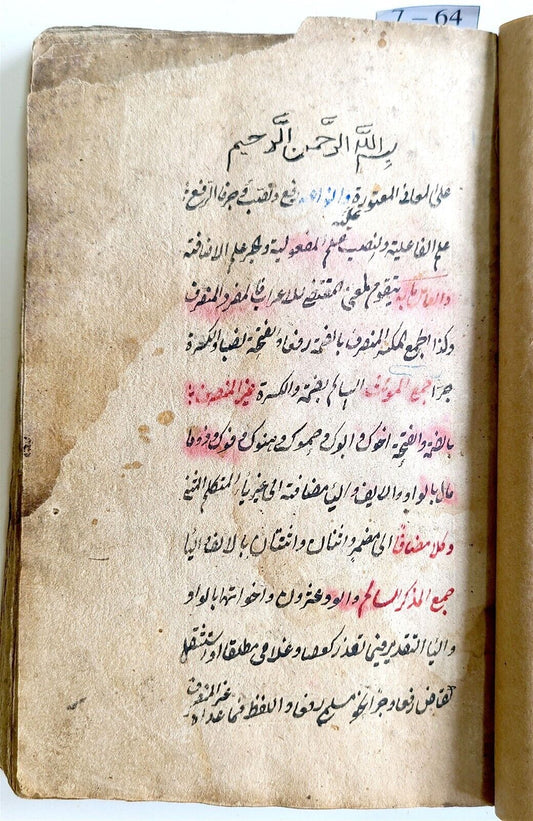 7 – 64
بسم اللَّه الرحَّمن الرَّحيم
على المعانى المعتورة وانواعه رفع ونصب وجر فالرفع
عليه
علم الفاعلية والنصب علم المفعولية والجر علم الاضافة
والعامل ما به يتقوم المعنى المقتضى للاعراب فالمفرد المنصرف
وكذا الجمع المكسر المنصرف بالضمة رفعا والفتحة نصبا والكسرة
جرا جمع المؤنث السالم بضمة والكسرة غير المنصرف
بالضمة والفتحة اخوك وابوك وحموك وهنوك وفوك وذو ما
مال بالواو والالف واليا مضافة الى غير ياء المتكلم المثنى
وكلا مضافا الى مضمر واثنان واثنتان بالالف واليا
جمع المذكر السالم والو وعشرون واخواتها بالواو
واليا التقدير فيما تعذر كعصا وغلامى مطلقا او استثقل
كقاض رفعا وجرا ونحو مسلمى رفعا واللفظ فيما عداه غير المنصرف